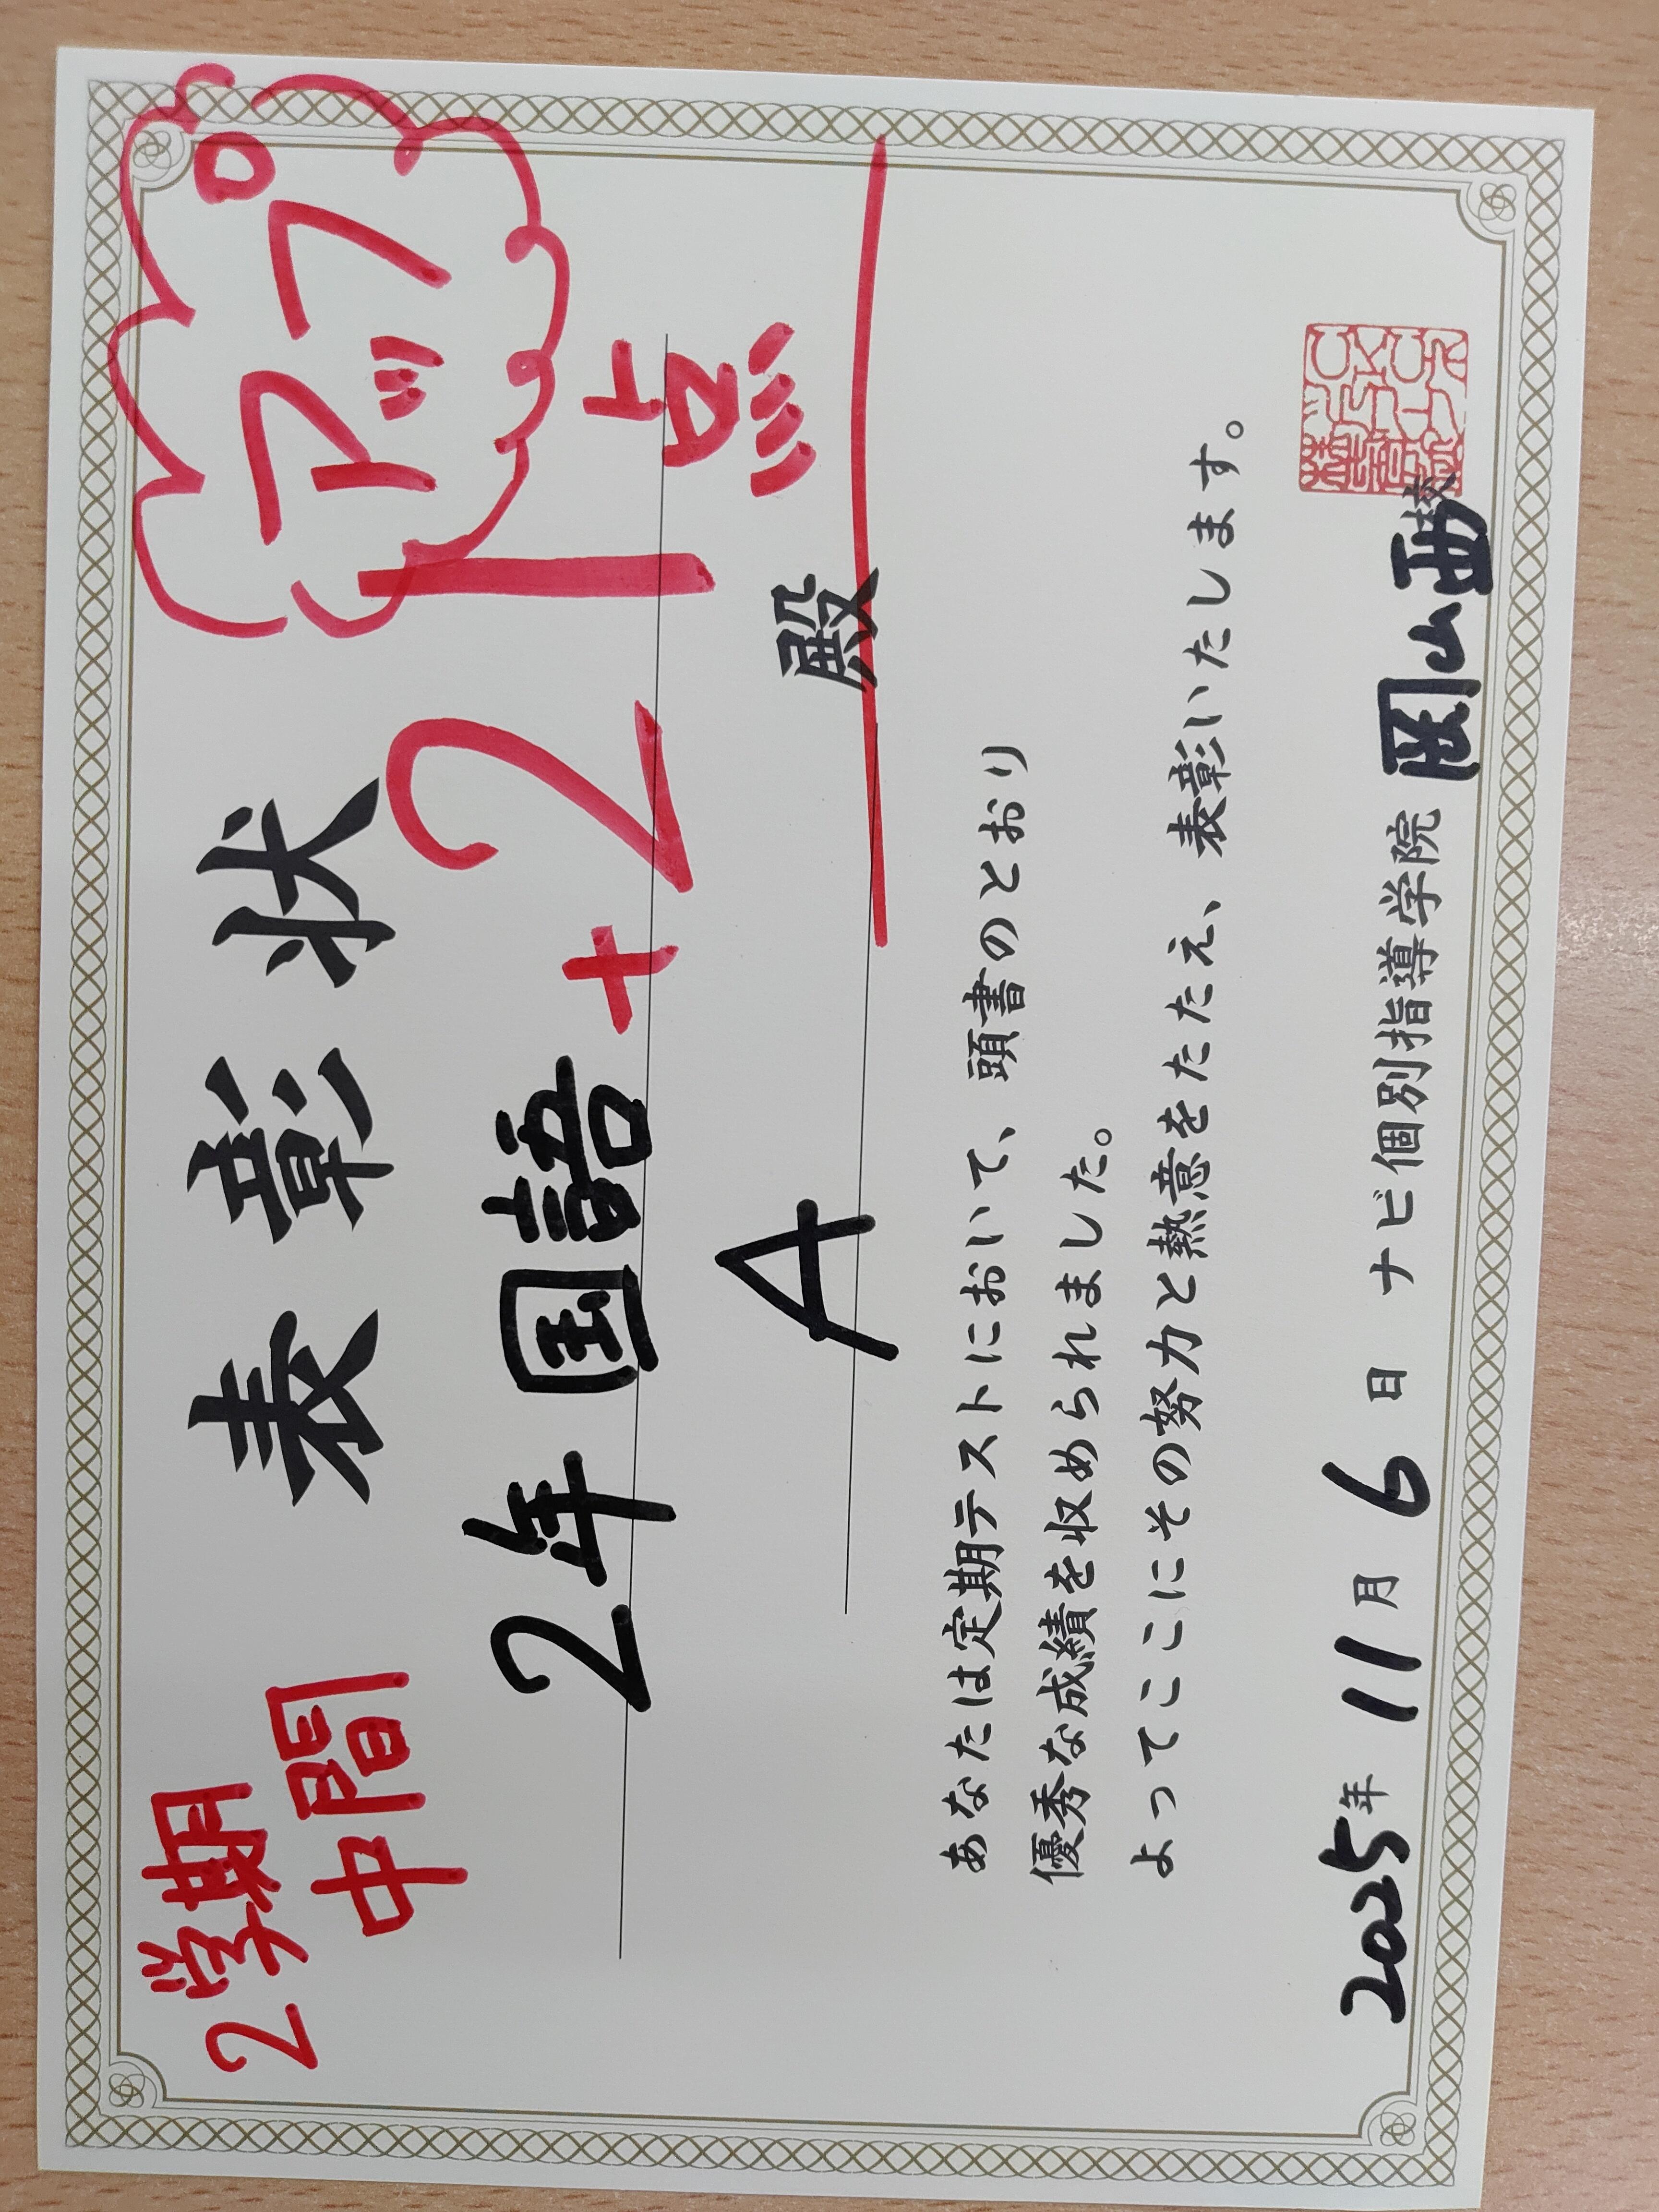 2学期
中間
表彰状
アップ
2年国語 +21点
A 殿
あなたは定期テストにおいて、頭書のとおり
優秀な成績を収められました。
よってここにその努力と熱意をたたえ、表彰いたします。
2025年 11月 6日 ナビ個別指導学院 岡山西校